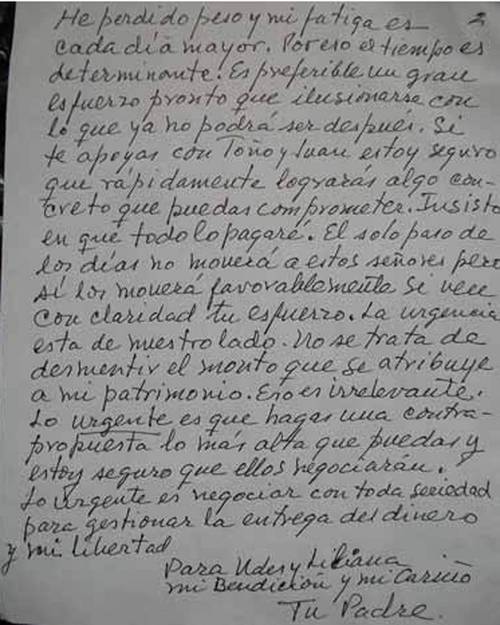 He perdido peso y mi fatiga es
cada día mayor. Por eso el tiempo es
determinante. Es preferible un gran
esfuerzo pronto que ilusionarse con
lo que ya no podrá ser después. Si
te apoyas con Toño y Juan estoy seguro
que rápidamente lograrás algo con-
creto que puedas comprometer. Insisto
en que todo lo pagaré. El solo paso de
los días no moverá a estos señores pero
sí los moverá favorablemente si ven
con claridad tu esfuerzo. La urgencia
esta de nuestro lado. No se trata de
desmentir el monto que se atribuye
a mi patrimonio. Eso es irrelevante.
Lo urgente es que hagas una contra-
propuesta lo mas alta que puedas y
estoy seguro que ellos negociarán.
Lo urgente es negociar con toda seriedad
para gestionar la entrega del dinero
y mi libertad
Para Udes y Liliana
mi Bendición y mi Cariño
Tu Padre.